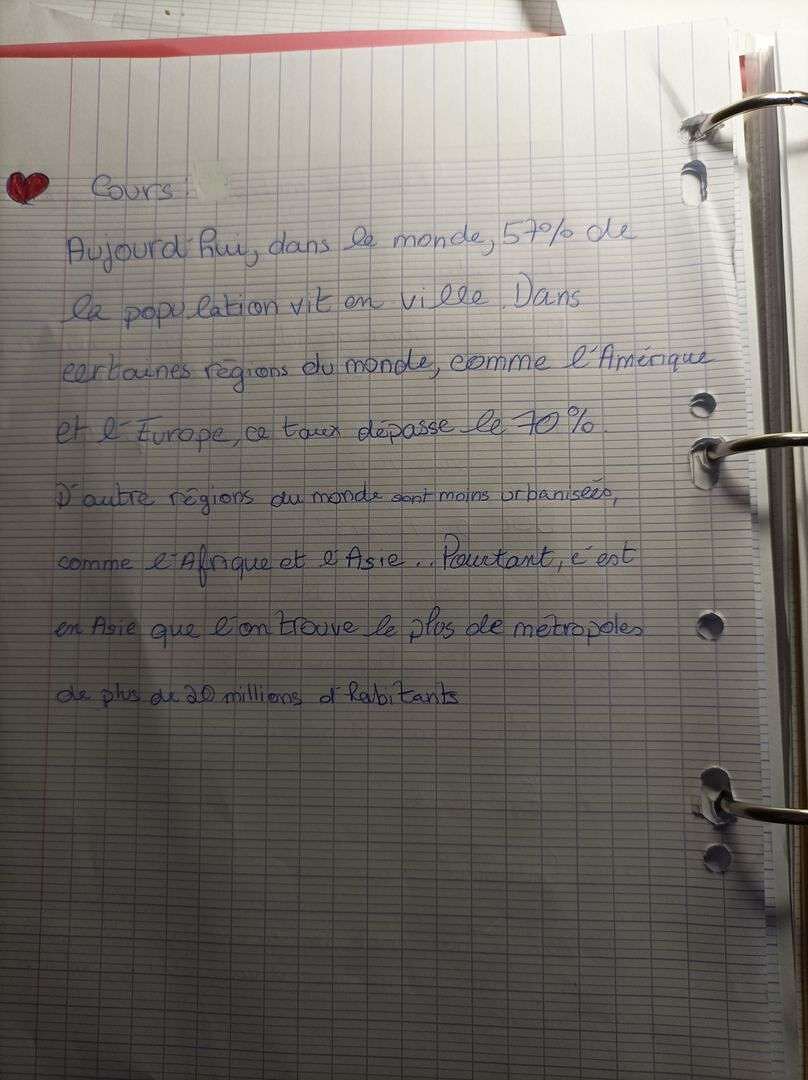 Cours:
Aujourd'hui, dans le monde, 57% de
la population vit en ville. Dans
certaines régions du monde, comme l'Amérique
et l'Europe, ce taux dépasse le 70%.
D'autre régions du monde sont moins urbanisées,
comme l'Afrique et l'Asie.. Pourtant, c'est
en Asie que l'on trouve le plus de métropoles
de plus de 20 millions d'habitants